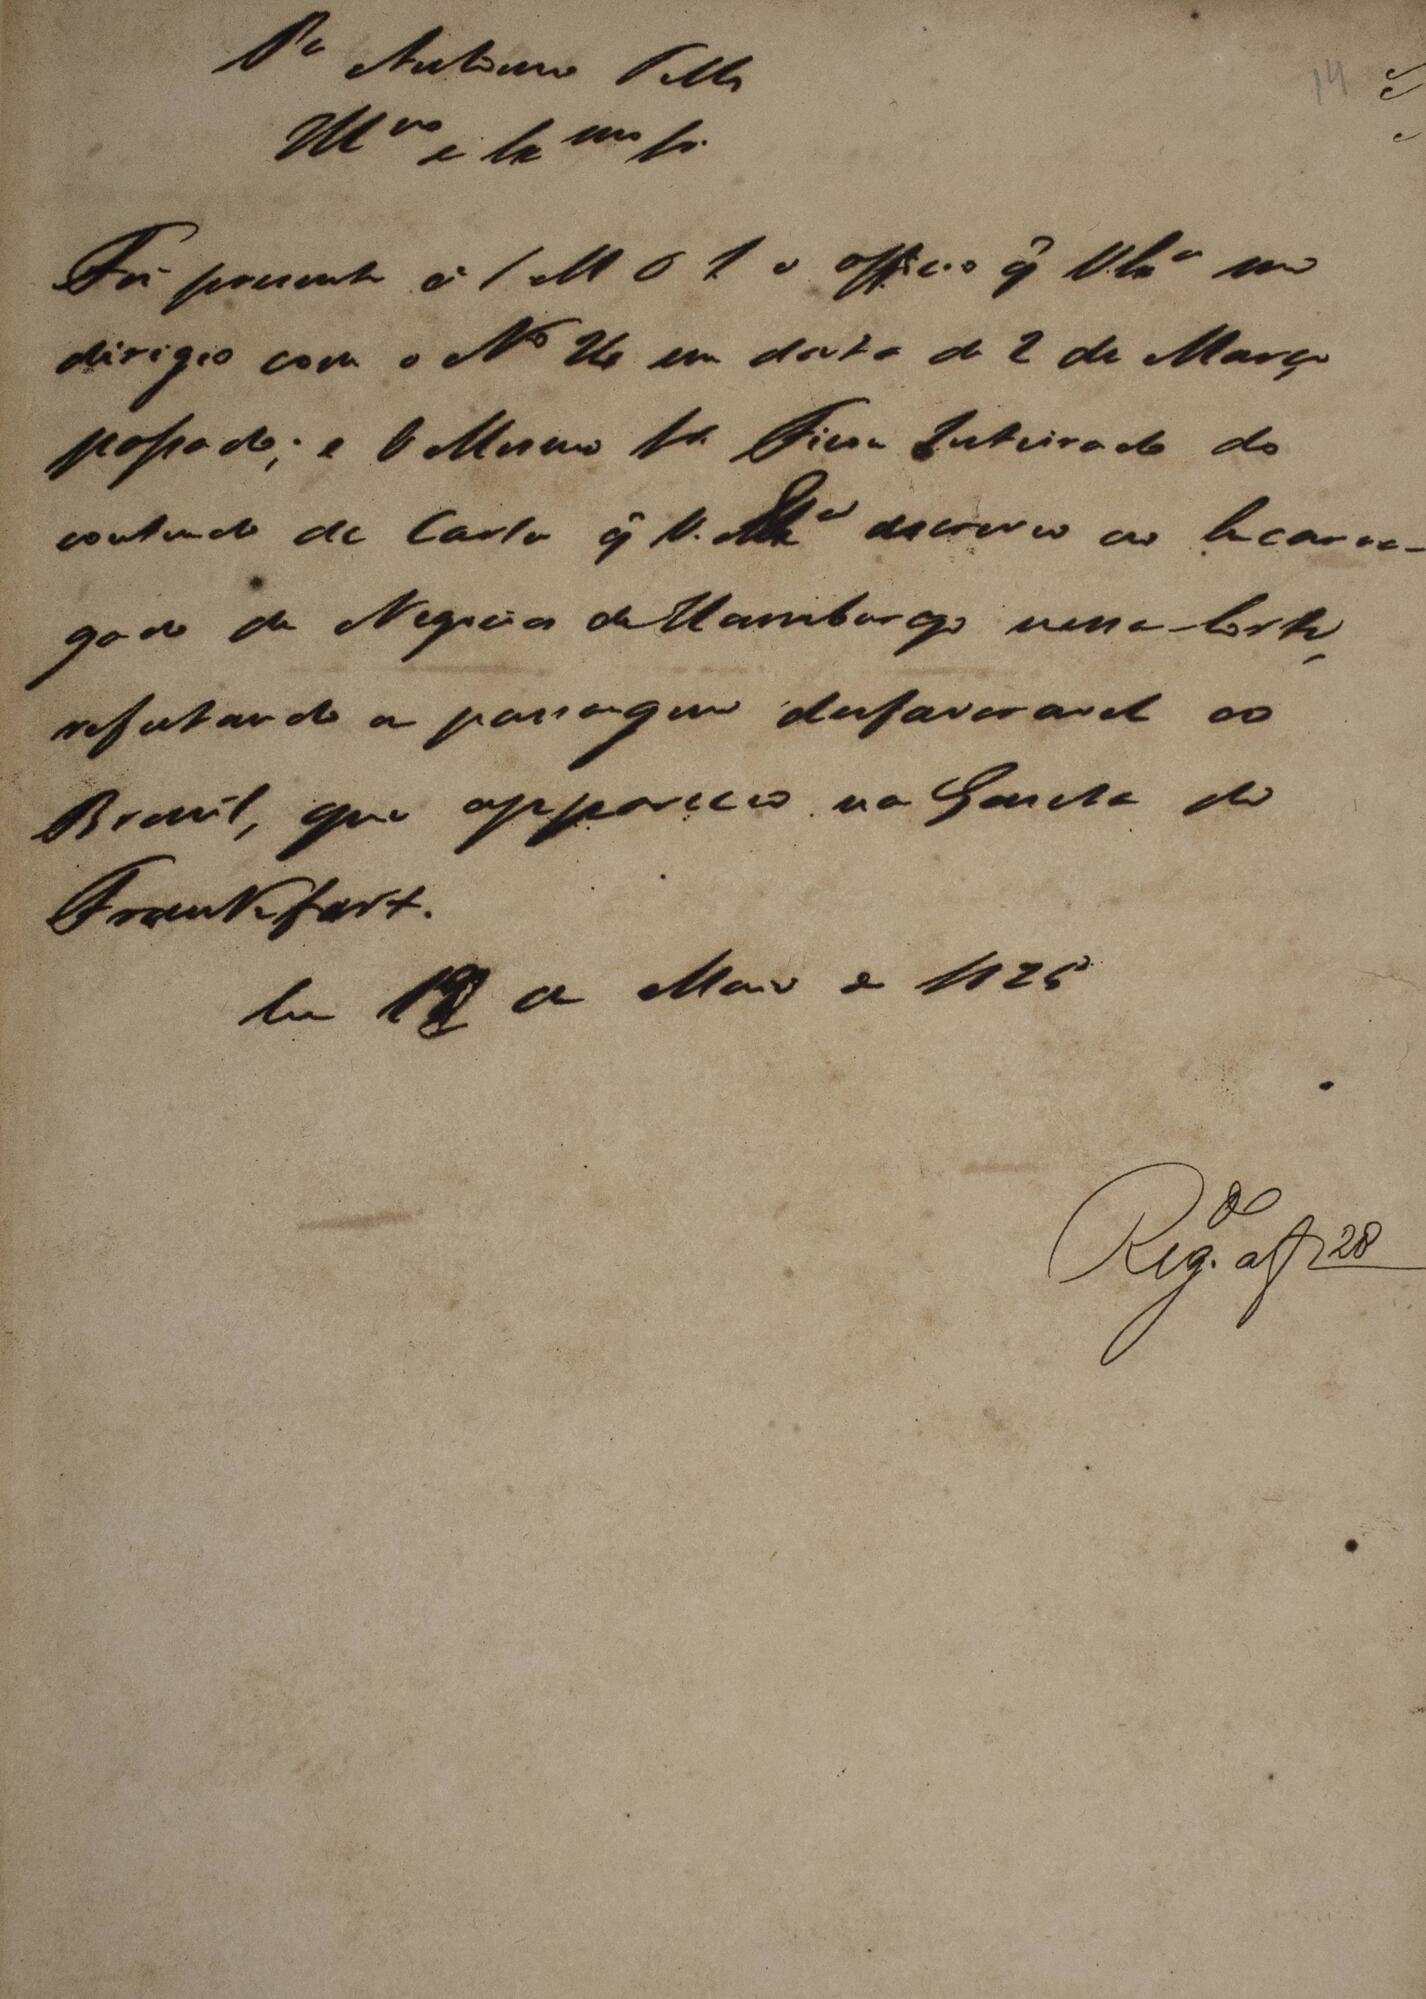 Pa Antonio Telles
Illmo e Exmo Sr
Foi presente a S M O I o officio q̃ V.Exa me
dirigio com o No em data de 2 de Março
passado; e O Mesmo Sr. Ficou Inteirado do
conteudo da Carta q̃ V. Exa escreveo ao Encarre-
gado de Negocios de Hamburgo nessa Corte,
refutando a passagem desfavoravel ao
Brasil, que appareceo na Gazeta de
Frankfort.
Em 12 de Maio de 1825
Reg.do a f 28
14